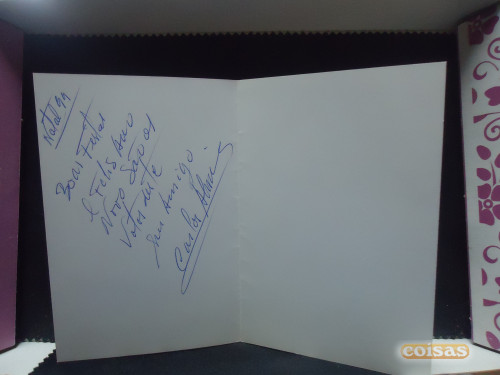 Natal 99
Boas Festas
e Felis Ano
Novo São os
Votos deste
seu amigo
Carlos
coisas